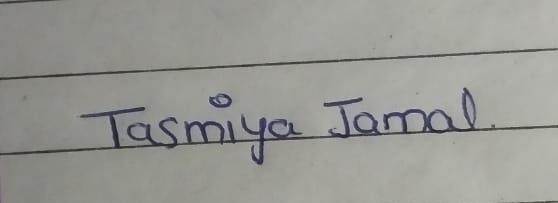 Tasmiya Jamal.